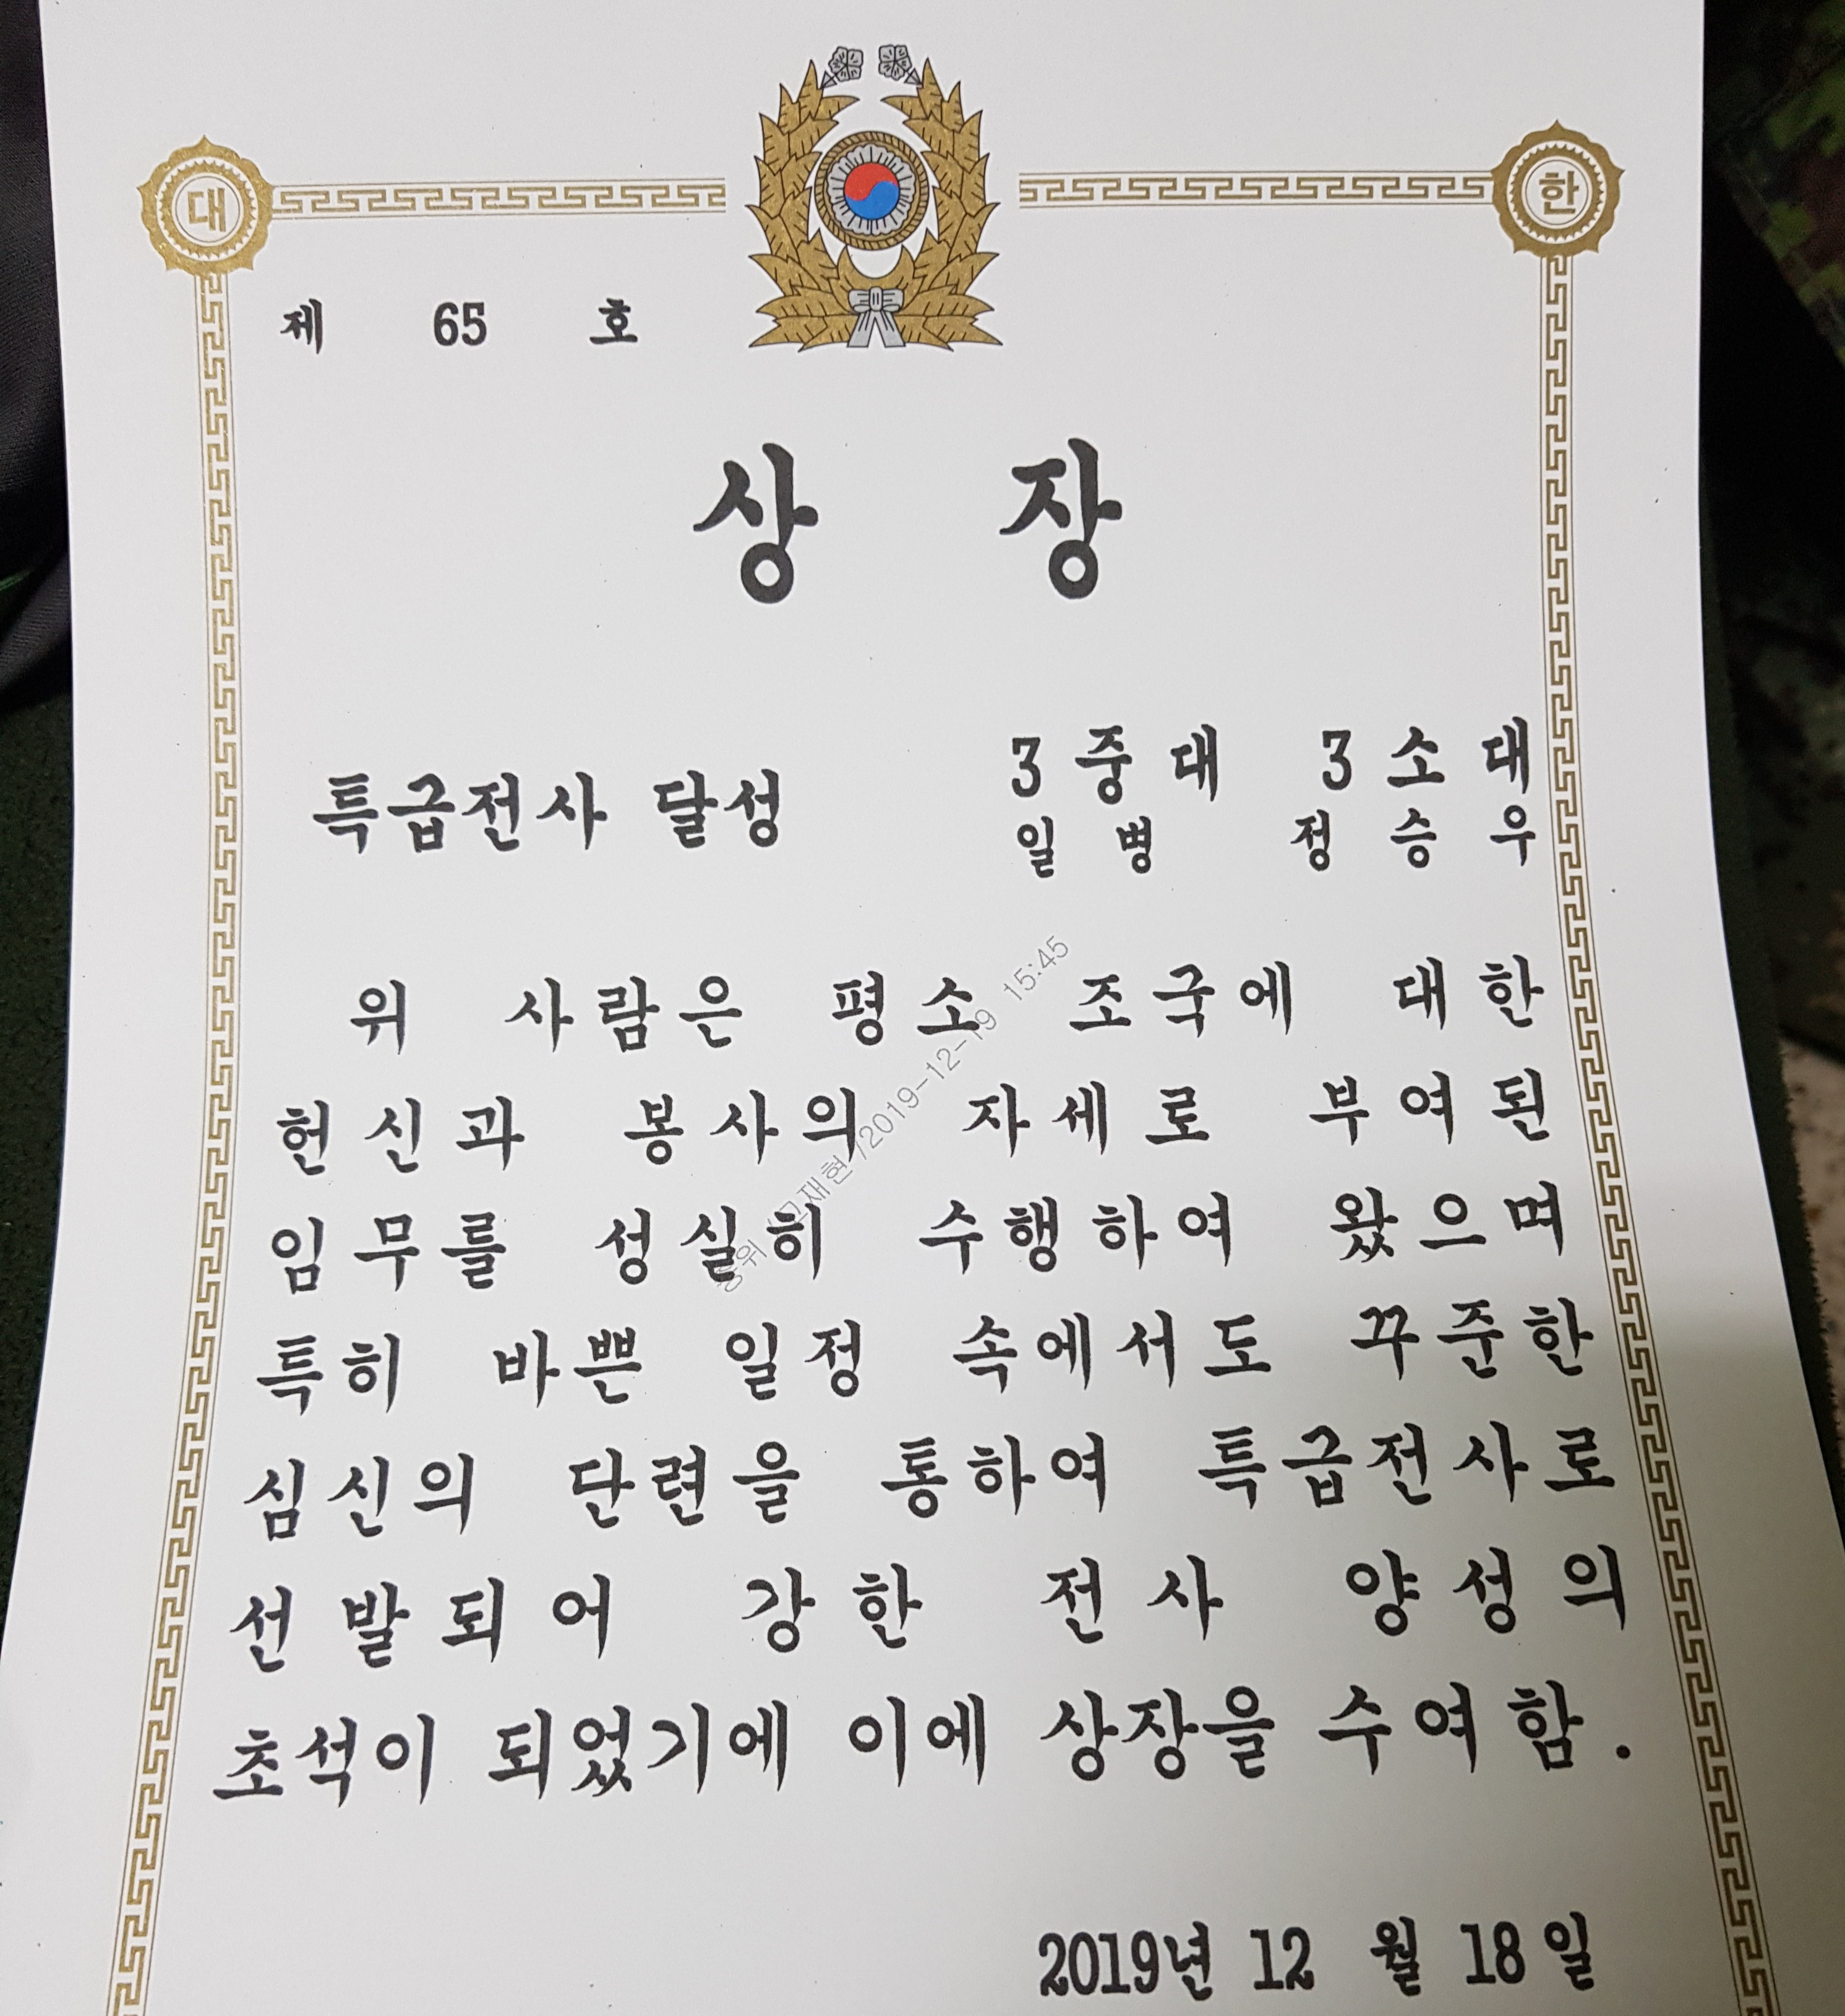 대 한
제 65 호
상 장
특급전사 달성
3중대 3소대
일병 정승우
위 사람은 평소 조국에 대한
헌신과 봉사의 자세로 부여된
임무를 성실히 수행하여 왔으며
특히 바쁜 일정 속에서도 꾸준한
심신의 단련을 통하여 특급전사로
선발되어 강한 전사 양성의
초석이 되었기에 이에 상장을 수여함.
2019년 12 월 18일
/2019-12-19 15:45